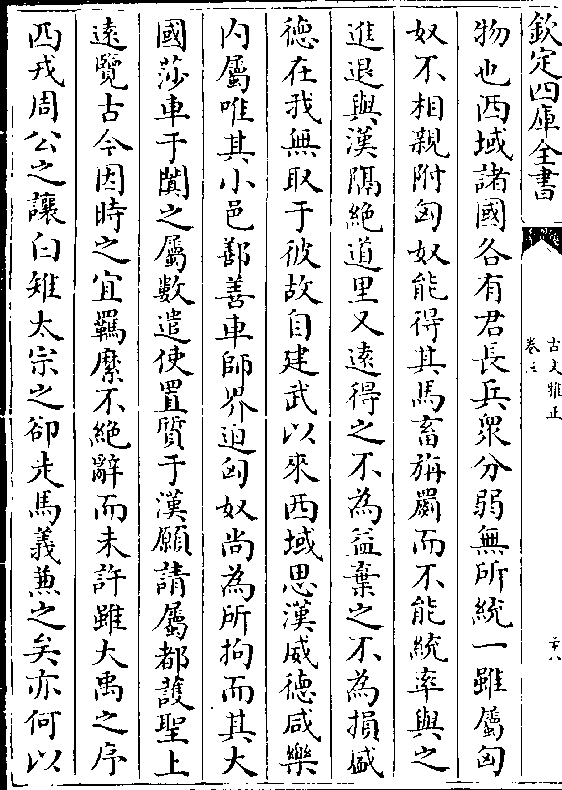 欽定四庫全書
古文雅正
卷三
二十八
物也西域諸國各有君長兵衆分弱無所統一雖屬匈
奴不相親附匈奴能得其馬畜旃罽而不能統率與之
進退與漢隔絶道里又遠得之不為益棄之不為損盛
德在我無取于彼故自建武以來西域思漢威德咸樂
内屬唯其小邑鄯善車師界迫匈奴尚為所拘而其大
國莎車于闐之屬數遣使置質于漢願請屬都護聖上
遠覽古今因時之宜羈縻不絶辭而未許雖大禹之序
西戎周公之讓白雉太宗之卻走馬義兼之矣亦何以